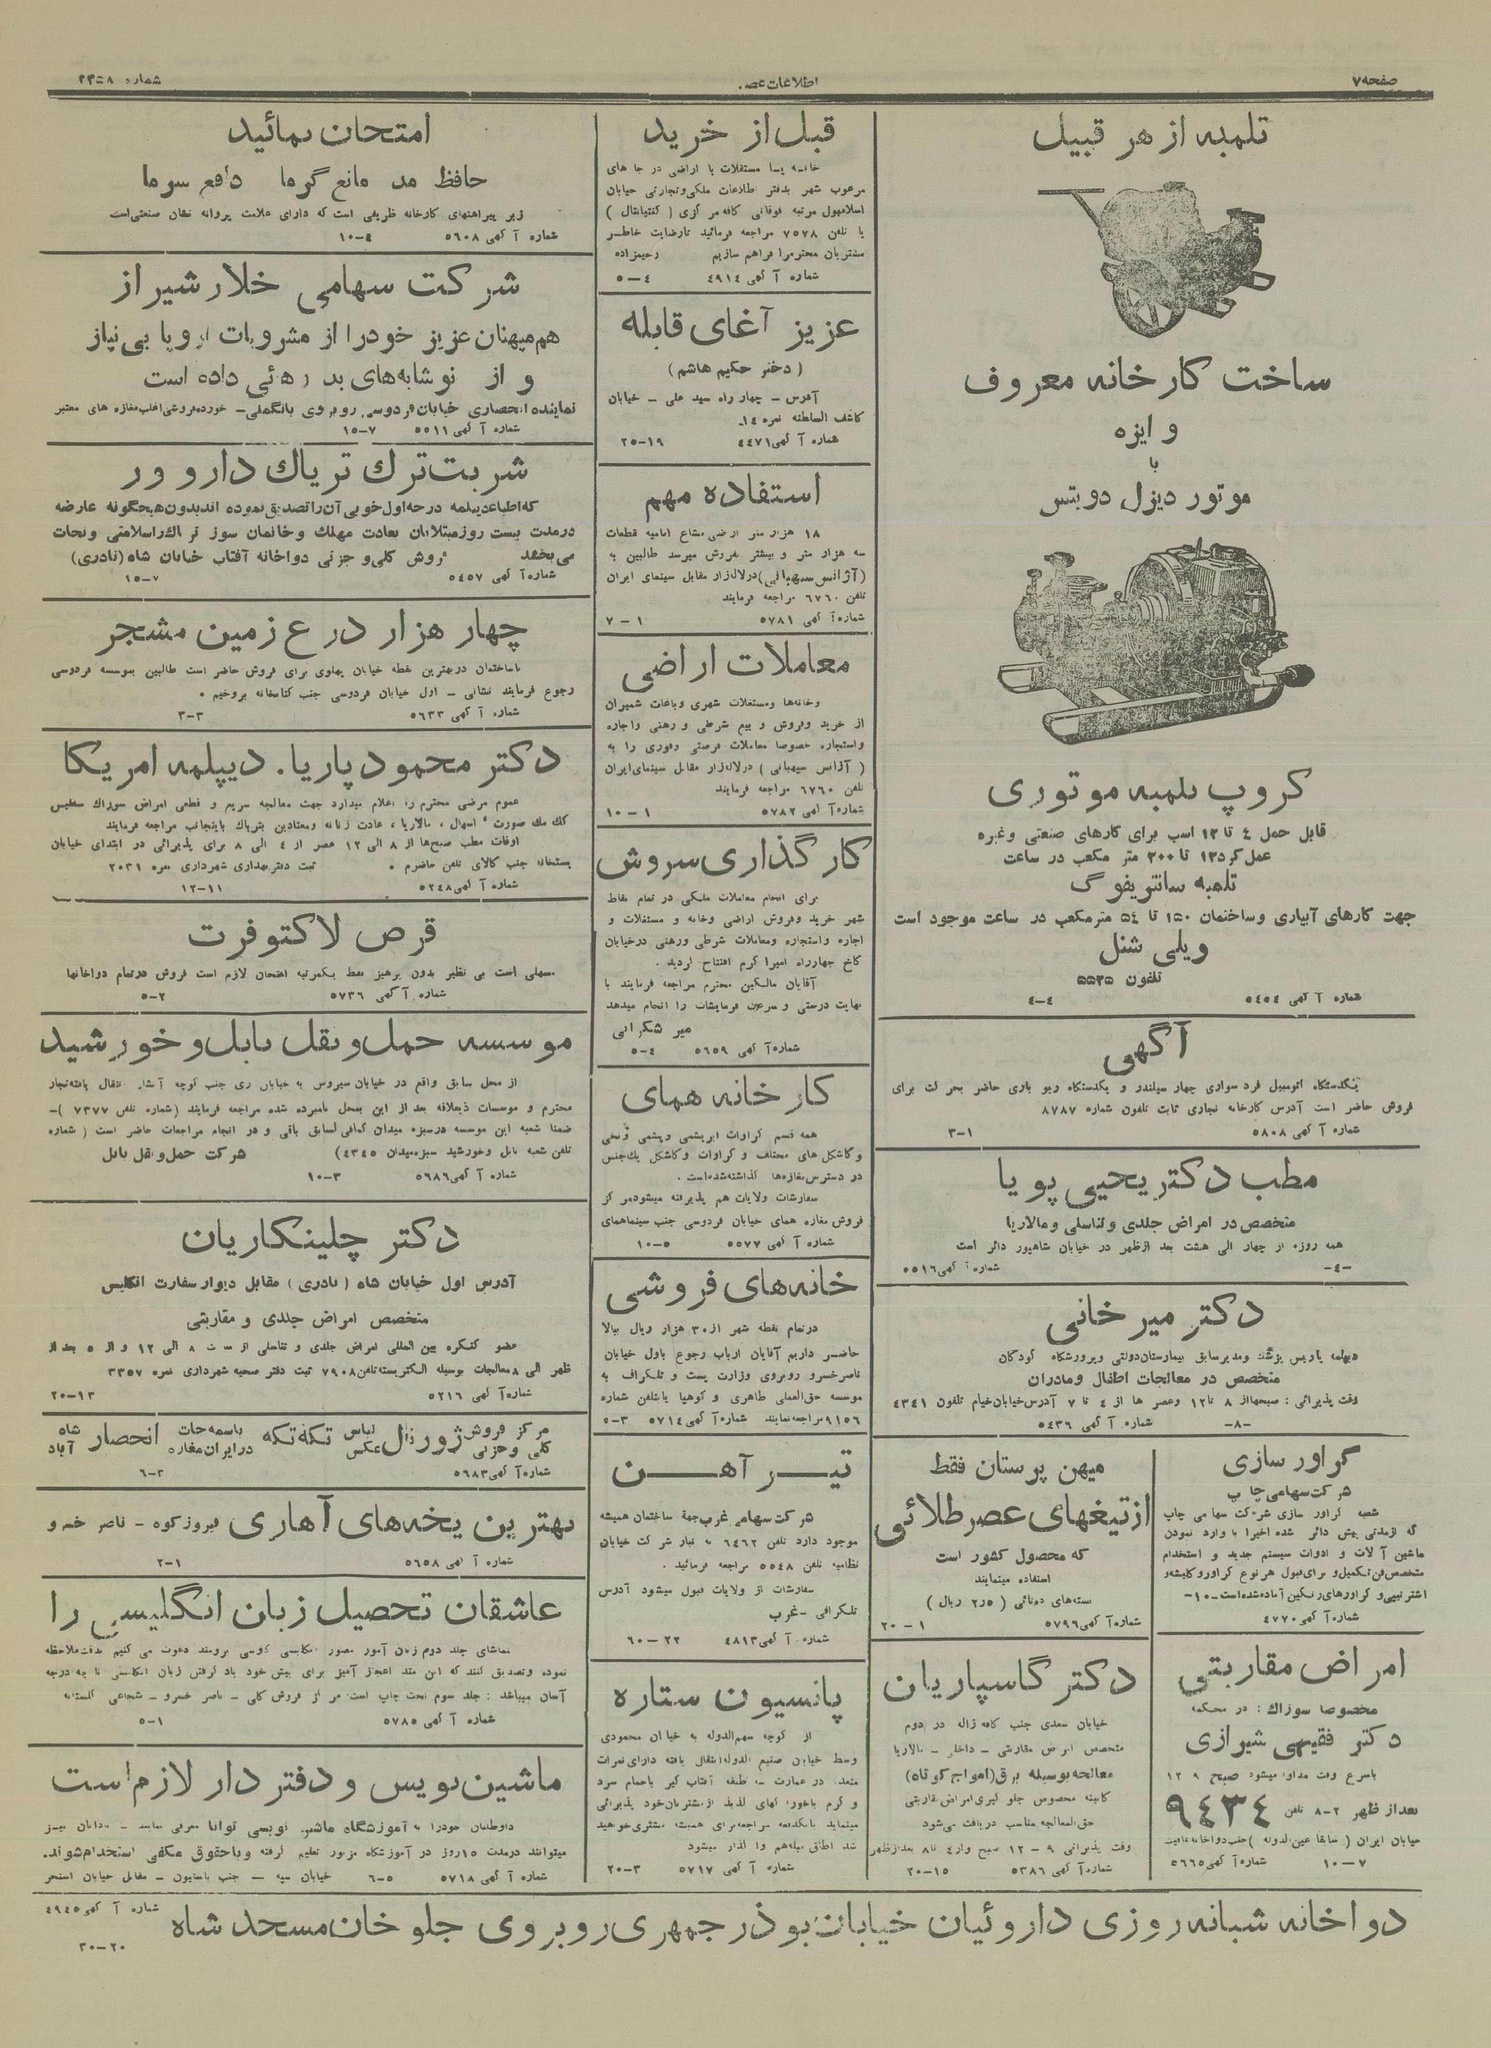 صفحه ۷
اطلاعات عصر
شماره ۲۳۵۸
تلمبه از هر قبیل
ساخت کارخانه معروف
و ایزه
با
موتور دیزل دویتس
گروپ تلمبه موتوری
قابل حمل ٤ تا ۱۲ اسب برای کارهای صنعتی وغیره
عمل کرد ۱۲ تا ۲۰۰ متر مکعب در ساعت
تلمبه سانتریفوگ
جهت کارهای آبیاری وساختمان ۱۵۰ تا ۵٤ مترمکعب در ساعت موجود است
ویلی شنل
تلفون ۵۵۲۵
شماره آ گهی ٥٤٥٤ ٤-٤
آگهی
یکدستگاه اتومبیل فرد سواری چهار سیلندر و یکدستگاه ریو باری حاضر بحر کت برای
فروش حاضر است آدرس کارخانه نجاری ثابت تلفون شماره ۸۷۸۷
شماره آ گهی ۵۸۰۸ ۳-۱
مطب دکتر یحیی پویا
متخصص در امراض جلدی و تناسلی و مالاریا
همه روزه از چهار الی هشت بعد ازظهر در خیابان شاهپور دائر است
-٤- شماره آ گهی ٥٥١٦
دکتر میر خانی
دیپلمه پاریس پزشك ومدیرسابق بیمارستان دولتی وپرورشگاه کودکان
متخصص در معالجات اطفال ومادران
وقت پذیرائی : صبحهااز ۸ تا۱۲ وعصر ها از ٤ تا ۷ آدرس خیابان خیام تلفون ٤٣٤١
-۸- شماره آ گهی ٥٤٣٦
گراور سازی
شرکت سهامی چاپ
شعبه گراور سازی شرکت سهامی چاپ
که ازمدتی پیش دائر شده اخیرا با وارد نمودن
ماشین آلات و ادوات سیستم جدید و استخدام
متخصص فن تکمیل و برای قبول هر نوع گراور و کلیشه
شماره آ گهی ٤٧٧٠
امراض مقاربتی
مخصوصا سوزاك : در محکمه
دکتر فقیهی شیرازی
باسرع وقت مداوا میشود صبح ۹ ۱۲
بعد از ظهر ۲-۸ تلفن ۹٤۳٤
خیابان ایران ( سابقا عین الدوله )
۷-۱۰ شماره آ گهی ٥٦٦٥
میهن پرستان فقط
از تیغهای عصر طلائی
که محصول کشور است
استفاده مینمایند
بسته‌های ده تائی ( ۲ر۵ ریال )
شماره آ گهی ۵۷۹٦ ۱-۲۰
دکتر گاسپاریان
خیابان سعدی جنب کافه ژاله در دوم
متخصص امراض مقاربتی - داخلی - مالاریا
معالجه بوسیله برق (امواج کوتاه)
کابینه مخصوص جلو گیری امراض مقاربتی
حق المعالجه مناسب دریافت می‌شود
وقت پذیرائی ۹ - ۱۲ صبح و از ٤ تا ۸ بعدازظهر
شماره آ گهی ٥٣٨٦ ۱۵-۲۰
قبل از خرید
خانه یا مستغلات یا اراضی در جا های
مرغوب شهر بدفتر اطلاعات ملکی و تجارتی خیابان
اسلامبول مرتبه فوقانی کافه مر کزی ( کنتیانتال )
یا تلفن ۷۵۷۸ مراجعه فرمائید تا رضایت خاطر
مشتریان محترم را فراهم سازیم رحیمزاده
شماره آ گهی ٤٩١٤ ٤-٥
عزیز آغای قابله
( دختر حکیم هاشم )
آدرس - چهار راه سید علی - خیابان
کاشف السلطنه نمره ۱٤
شماره آ گهی ٤٤٧١ ۱۹-۲۵
استفاده مهم
۱۸ هزار متر ارضی مشاع امامیه قطعات
سه هزار متر و بیشتر بفروش میرسد طالبین به
(آژانس سیهبانی) درلاله‌زار مقابل سینمای ایران
تلفن ٦٧٦٠ مراجعه فرمایند
شماره آ گهی ٥٧٨١ ۱-۷
معاملات اراضی
وخانه‌ها ومستغلات شهری وباغات شمیران
از خرید وفروش و بیع شرطی و رهنی واجاره
واستجاره خصوصا معاملات فرصتی وفوری را به
( آژانس سیهبانی ) درلاله‌زار مقابل سینمای ایران
تلفن ٦٧٦٠ مراجعه فرمایند
شماره آ گهی ۵۷۸۲ ۱-۱۰
کارگذاری سروش
برای انجام معاملات ملکی در تمام نقاط
شهر خرید وفروش اراضی وخانه و مستغلات و
اجاره واستجاره ومعاملات شرطی ورهنی درخیابان
کاخ چهارراه امیرا کرم افتتاح گردید .
آقایان مالکین محترم مراجعه فرمایند با
نهایت درستی و سرعت فرمایشات را انجام میدهد
میر شکرائی
شماره آ گهی ٥٦٥٩ ٤-٥
کارخانه همای
همه قسم کراوات ابریشمی وپشمی ونخی
وکاشکل های مختلف و کراوات وکاشکل یك‌جنس
در دسترس مغازه‌ها گذاشته شده است .
سفارشات ولایات هم پذیرفته میشود مر کز
فروش مغازه همای خیابان فردوسی جنب سینماهمای
شماره آ گهی ٥٥٧٧ ٥-١٠
خانه‌های فروشی
درتمام نقطه شهر از۳۰ هزار ریال ببالا
حاضر داریم آقایان ارباب رجوع باول خیابان
ناصرخسرو روبروی وزارت پست و تلگراف به
موسسه حق‌العملی طاهری و کوهپا یا بتلفن شماره
۹۱۵٦ مراجعه نمایند شماره آ گهی ۵۷۱٤ ۳-۵
تیر آهن
شرکت سهامی غرب جهة ساختمان همیشه
موجود دارد تلفن ٦٤٦٢ به انبار شرکت خیابان
نظامیه تلفن ٥٥٤٨ مراجعه فرمائید .
سفارشات از ولایات قبول میشود آدرس
تلگرافی -غرب
شماره آ گهی ٤٨١٣ ۲۲-٦۰
پانسیون ستاره
از کوچه سهم‌الدوله به خیابان محمودی
وسط خیابان صنیع الدوله انتقال یافته دارای نمرات
متعدد در عمارت سه طبقه آفتاب گیر باحمام سرد
و گرم باخوراکهای لذیذ ازمشتریان خود پذیرائی
مینماید بایکدفعه مراجعه برای همیشه مشتری خواهید
شد اطاق مبله هم واگذار میشود
شماره آ گهی ٥٧١٧ ۳-۲۰
امتحان نمائید
حافظ مد مانع گرما دافع سرما
زیر پیراهنهای کارخانه ظریفی است که دارای علامت پروانه نشان صنعتی است
شماره آ گهی ٥٦٠٨ ٤-١٠
شرکت سهامی خلار شیراز
هم‌میهنان عزیز خود را از مشروبات اروپا بی‌نیاز
و از نوشابه‌های بد رهائی داده است
نماینده انحصاری خیابان فردوسی روبروی بانک ملی- خورده فروشی اغلب مغازه های معتبر
شماره آ گهی ٥٥١١ ۷-۱۵
شربت ترك تریاك دارو ور
که اطباء دیپلمه درجه اول خوبی آن را تصدیق نموده اند بدون هیچگونه عارضه
درمدت بیست روز مبتلایان بعادت مهلك و خانمان سوز تریاك را سلامتی و نجات
می‌بخشد فروش کلی و جزئی دواخانه آفتاب خیابان شاه (نادری)
شماره آ گهی ٥٤٥٧ ۷-۱۵
چهار هزار در ع زمین مشجر
باساختمان در بهترین نقطه خیابان پهلوی برای فروش حاضر است طالبین بموسسه فردوسی
رجوع فرمایند نشانی - اول خیابان فردوسی جنب کتابخانه بروخیم .
شماره آ گهی ٥٦٣٣ ۳-۳
دکتر محمود پاریا. دیپلمه امریکا
عموم مرضی محترم را اعلام میدارد جهت معالجه سریع و قطعی امراض سوزاك سفلیس
کك مك صورت ، اسهال ، مالاریا ، عادت زنانه ومعتادین بتریاك باینجانب مراجعه فرمایند
اوقات مطب صبح‌ها از ۸ الی ۱۲ عصر از ٤ الی ۸ برای پذیرائی در ابتدای خیابان
پستخانه جنب کالای تلفن حاضرم . ثبت دفتر بهداری شهرداری نمره ۲۰۳۱
شماره آ گهی ٥٢٤٨ ۱۱-۱۲
قرص لاکتوفرت
مسهلی است بی نظیر بدون پرهیز فقط یکمرتبه امتحان لازم است فروش درتمام دواخانها
شماره آ گهی ٥٧٣٦ ۲-۵
موسسه حمل و نقل بابل و خورشید
از محل سابق واقع در خیابان سیروس به خیابان ری جنب کوچه آبشار انتقال یافته تجار
محترم و موسسات ذیعلاقه بعد از این بمحل نامبرده شده مراجعه فرمایند (شماره تلفن ۷۳۷۷ )-
ضمنا شعبه این موسسه درسبزه میدان کمافی‌لسابق باقی و در انجام مراجعات حاضر است ( شماره
تلفن شعبه بابل وخورشید سبزه‌میدان ٤٣٤٥) شرکت حمل و نقل بابل
شماره آ گهی ٥٦٨٦ ۳-۱۰
دکتر چلینگاریان
آدرس اول خیابان شاه (نادری) مقابل دیوار سفارت انگلیس
متخصص امراض جلدی و مقاربتی
عضو کنگره بین المللی امراض جلدی و تناسلی از ساعت ۸ الی ۱۲ و از ۵ بعد از
ظهر الی ۸ معالجات بوسیله الکتریسته تلفن ۷۹۰۸ ثبت دفتر صحیه شهرداری نمره ۳۳۵۷
شماره آ گهی ٥٢١٦ ۱۳-۲۰
مرکز فروش کلی وجزئی ژورنال لباس عکس تکه تکه باسمه جات در ایران مغازه انحصار شاه آباد
شماره آ گهی ٥٦٨٣ ۲-٦
بهترین یخه‌های آهاری فیروز کوه - ناصر خسرو
شماره آ گهی ٥٦٥٨ ۱-۲
عاشقان تحصیل زبان انگلیسی را
بتماشای جلد دوم زبان آموز مصور انگلیسی برومند دعوت می کنیم بدقت ملاحظه
نموده وتصدیق کنند که این متد اعجاز آمیز برای پیش خود یاد گرفتن زبان انگلیسی تا چه درجه
آسان میباشد : جلد سوم تحت چاپ است مرکز فروش کلی - ناصر خسرو -
شماره آ گهی ٥٧٨٥ ۱-۵
ماشین نویس و دفتر دار لازم است
داوطلبان خودرا به آموزشگاه ماشین نویسی توانا معرفی نمایند -
میتوانند درمدت ۱۵ روز در آموزشگاه مزبور تعلیم گرفته و با حقوق مکفی استخدام شوند.
شماره آ گهی ٥٧١٨ ٥-٦ خیابان سپه - جنب پاساژ - مقابل خیابان استخر
دواخانه شبانه روزی داروئیان خیابان بوذرجمهری روبروی جلو خان مسجد شاه
شماره آ گهی ٤٩٤٥
۲۰-۳۰